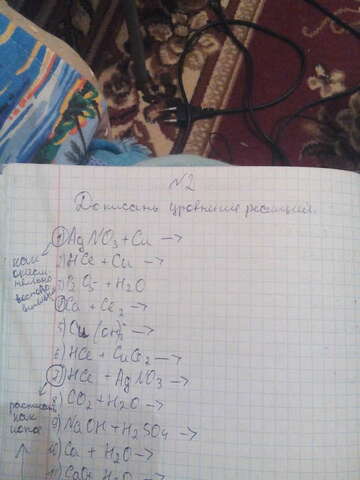 N2
Дописать уравнения реакций.
1) AgNO3 + Cu →
2) HCl + Cu →
3) P2O5 + H2O
4) Ca + Cl2 →
5) Cu(OH)2 →
6) HCl + CuCl2 →
7) HCl + AgNO3 →
8) CO2 + H2O →
9) NaOH + H2SO4 →
10) Ca + H2O →
11) CaO + H2O →
как
окисл
тельно
восстано
как